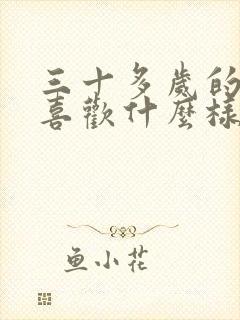 三十多歲的
喜歡什麼樣
鱼小花